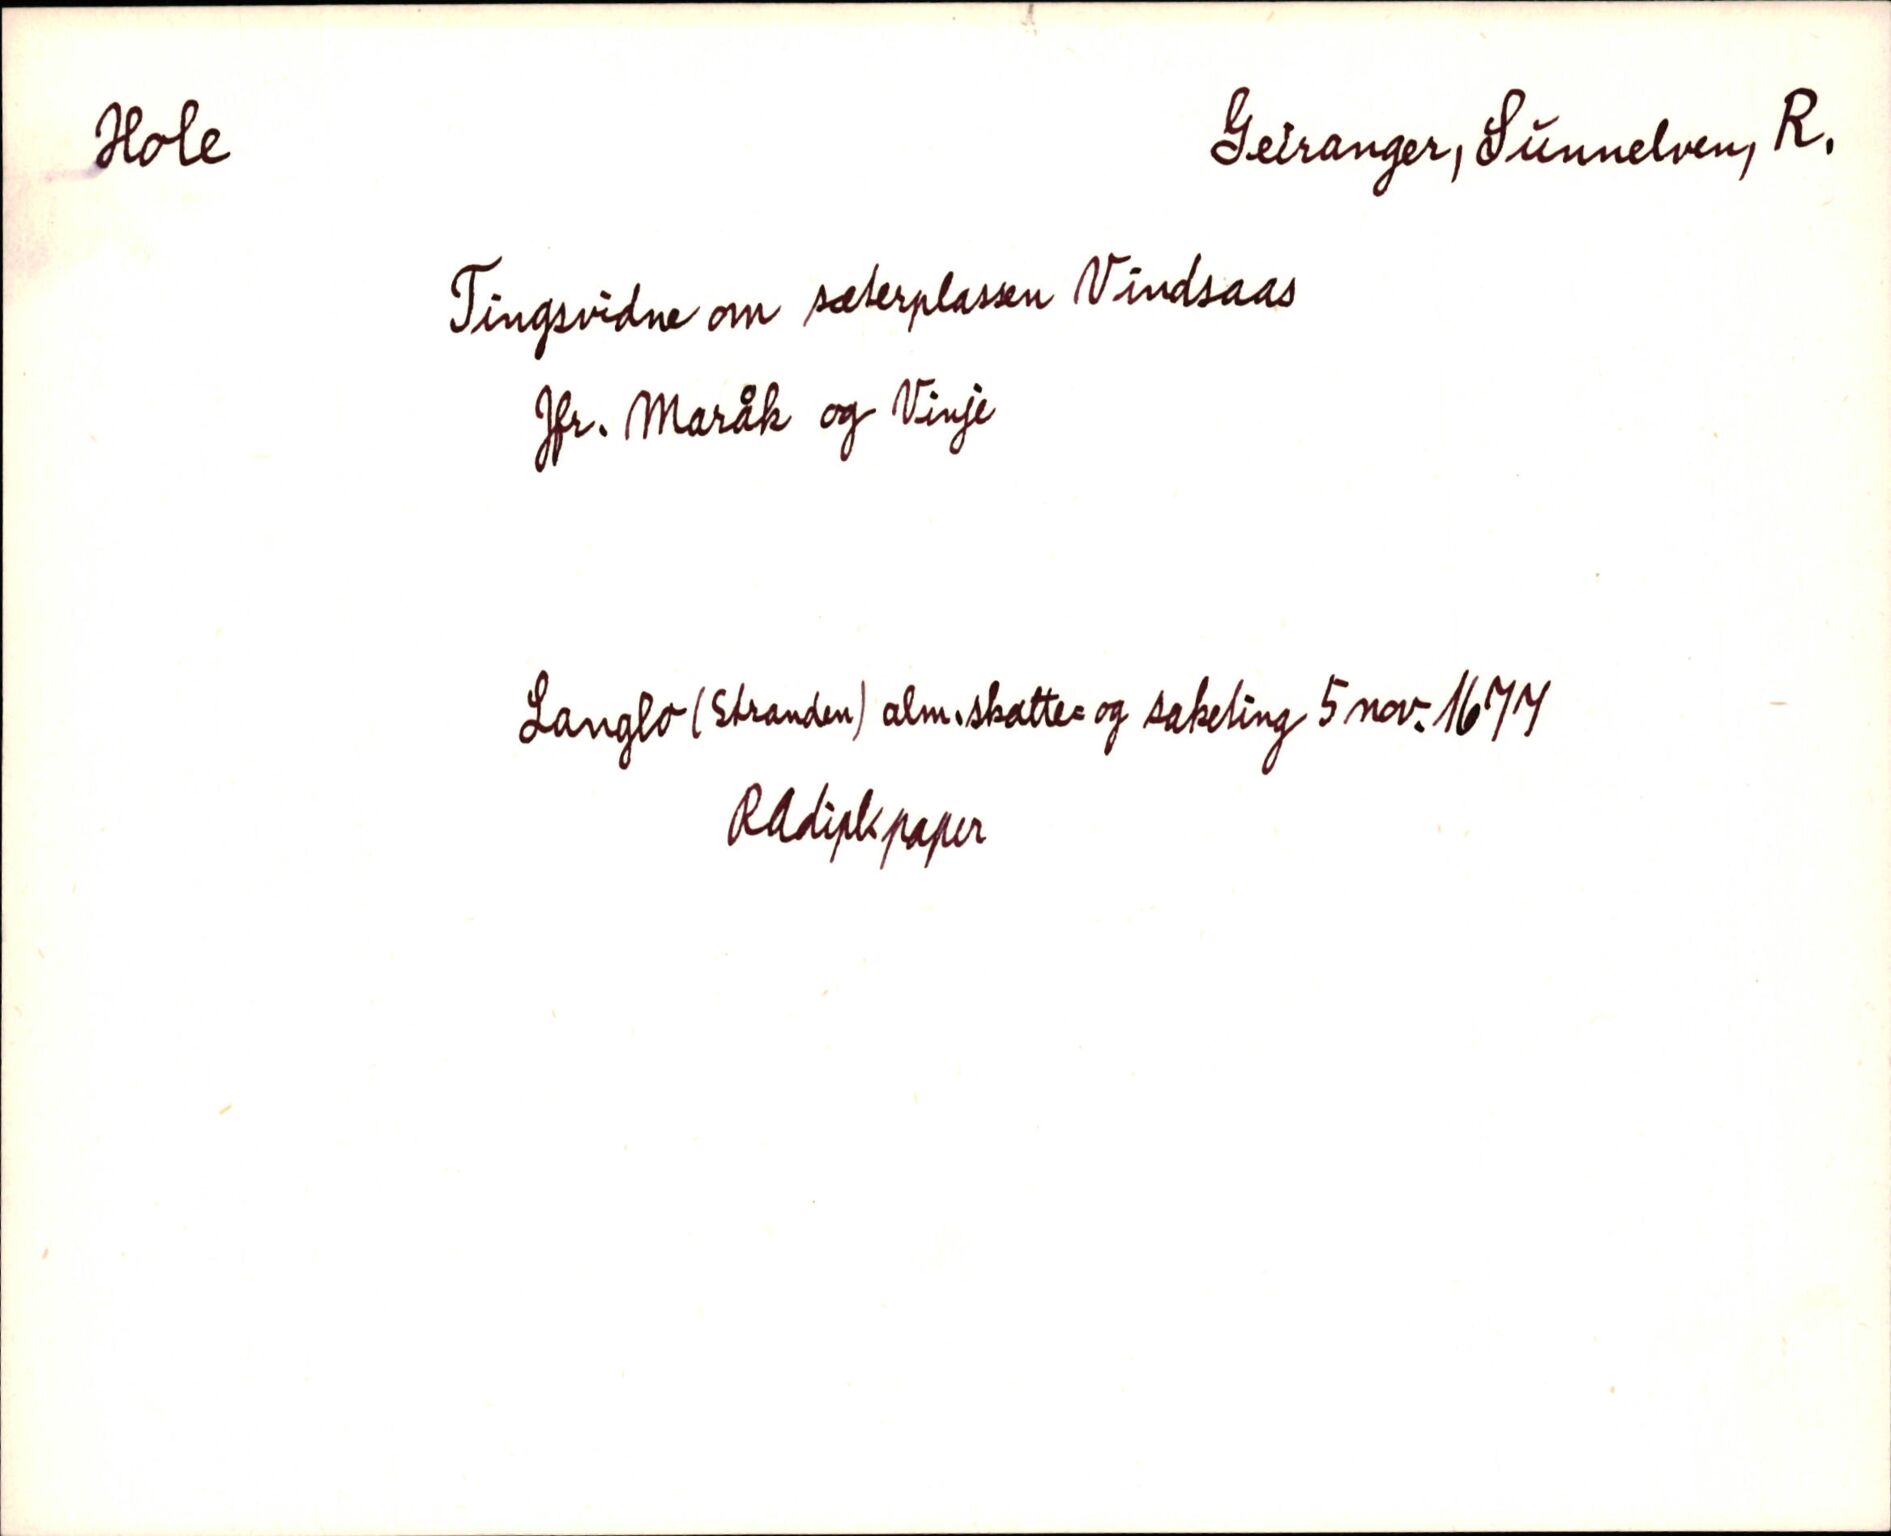 Hole
Geiranger, Sunnelven, R.
Tingsvidne om sæterplassen Vindsaas
Jfr. Maråk og Vinje
Langlo (Stranden) alm. skatte= og saketing 5 nov. 1677
RAdipl. paper